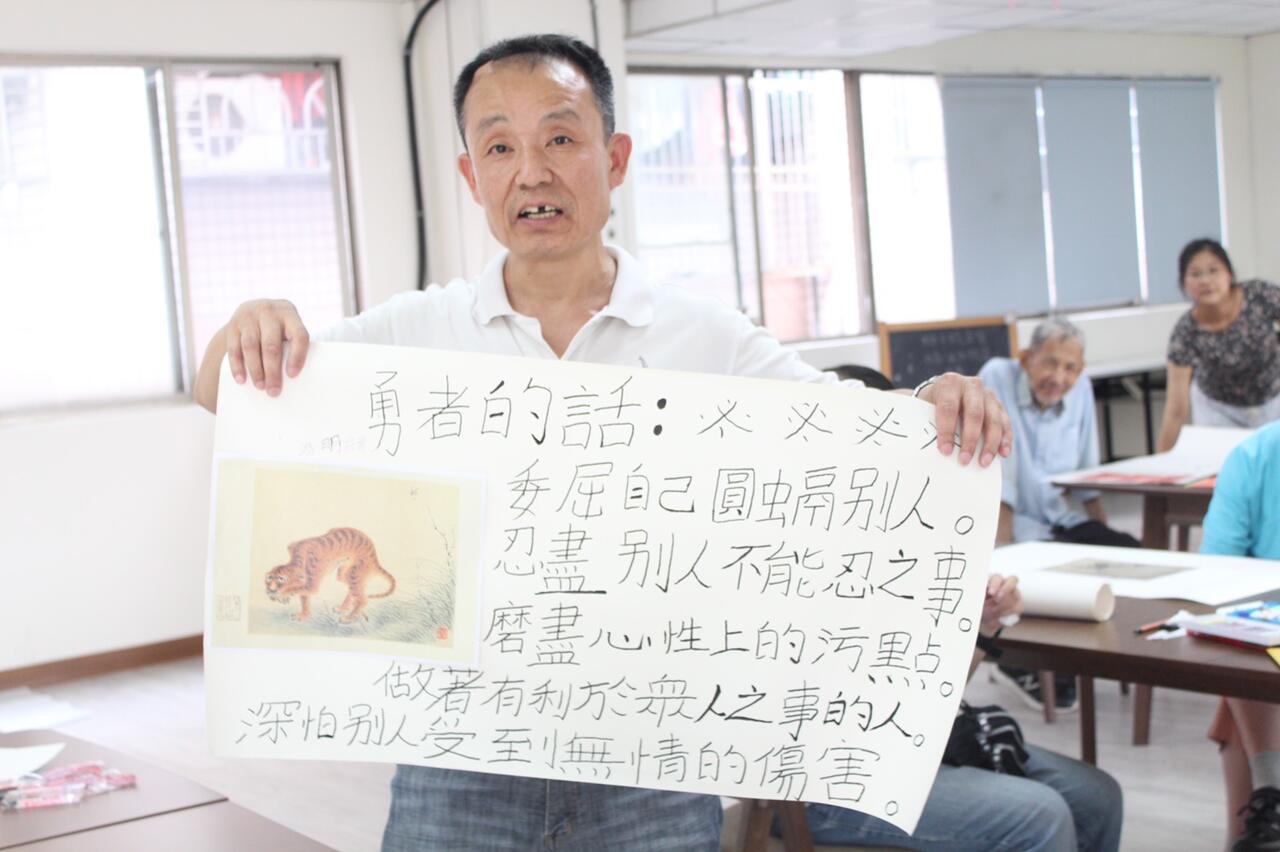 勇者的話:※ ※ ※ ※
委屈自己圓螎别人。
忍盡别人不能忍之事。
磨盡心性上的污點。
做著有利於眾人之事的人。
深怕别人受到無情的傷害。